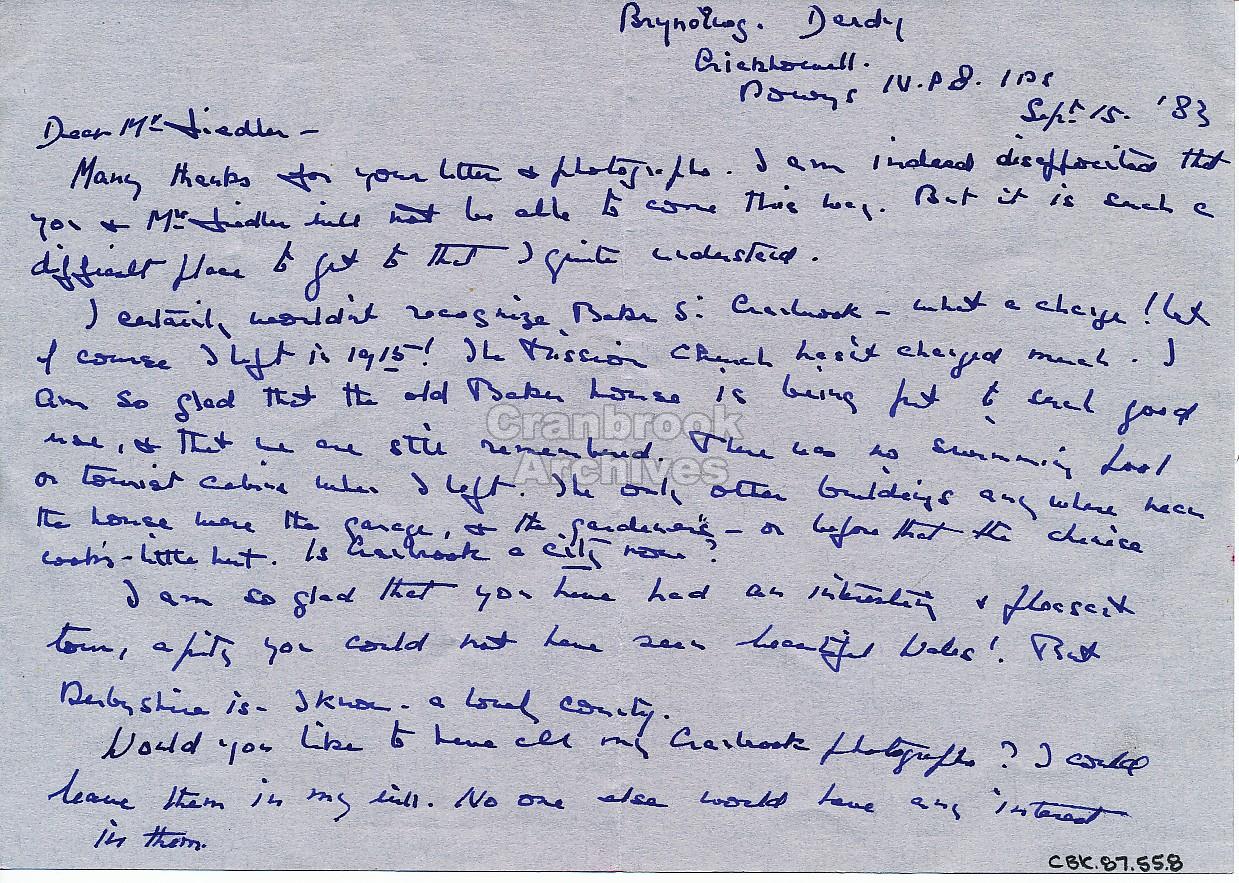 Dardy
Crickhowell.
Powys N.P8. 1
Sept. 15. '83
Dear Mr Fiedler -
Many thanks for your letter & photographs. I am indeed disappointed that
you & Mrs Fiedler will not be able to come this way. But it is such a
difficult place to get to that I quite understand.
I certainly wouldn't recognize Baker St. Cranbrook - what a change! but
of course I left in 1915! The Mission Church hasn't changed much. I
am so glad that the old Baker house is being put to such good
use, & that we are still remembered. There was no swimming pool
or tourist cabins when I left. The only other buildings anywhere near
the house were the garage, & the gardener's - or before that the chinese
cook's - little hut. Is Cranbrook a city now?
I am so glad that you have had an interesting & pleasant
tour, a pity you could not have seen beautiful Wales! But
Derbyshire is - I know - a lovely county.
Would you like to have all my Cranbrook photographs? I could
leave them in my will. No one else would have any interest
in them.
Cranbrook
Archives
CBK.87.558